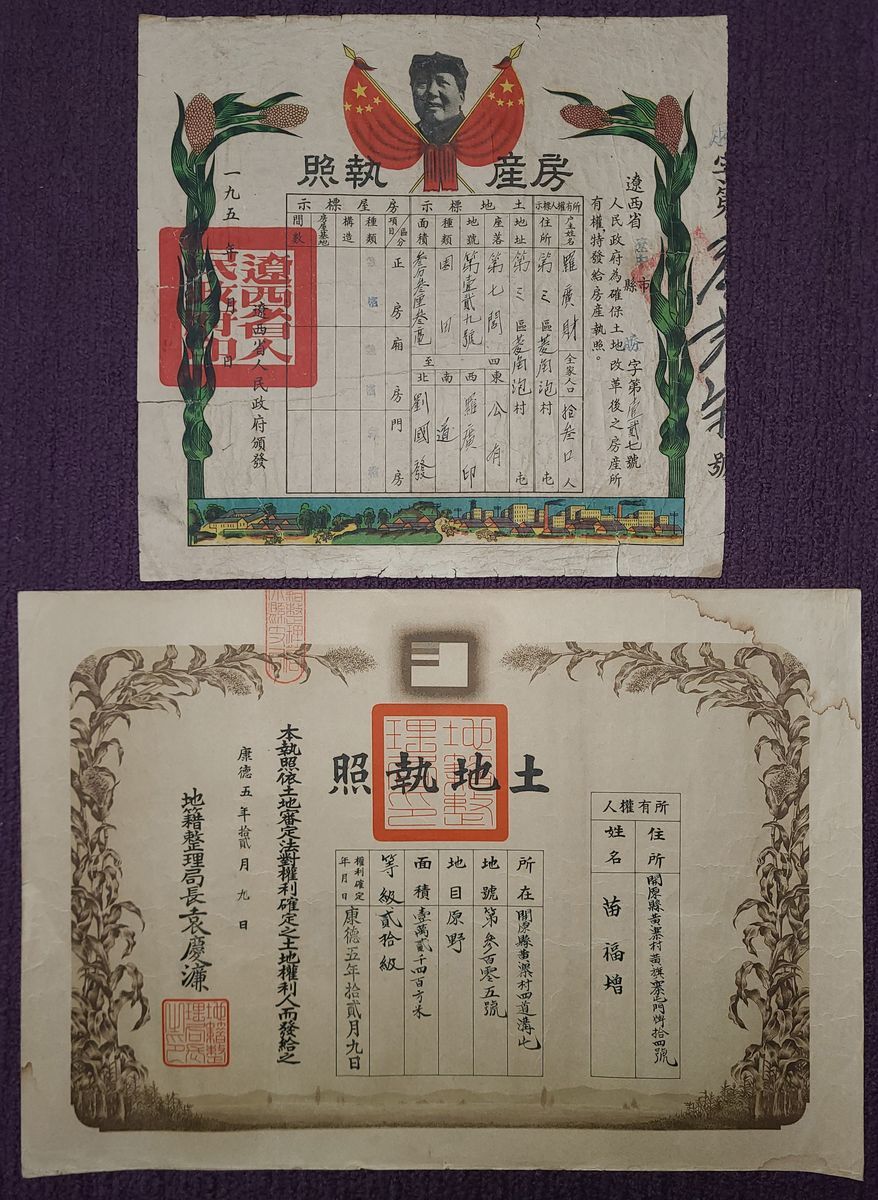 房産執照
遼西省
人民政府為確保土地改革後之房産所
有權,特發給房産執照。
縣市
字第壹貳七號
號
所有權人標示
土地標示
房屋標示
戶主姓名
羅廣財
全家人口
拾叁口人
住所
第三區菱角泡村
屯
地址
第三區菱角泡村
屯
座落
第七閭
四至
東
公有
地號
第壹貳九號
西
羅廣印
種類
園田
南
道
面積
叁分叁厘叁毫
北
劉國發
項目
區分
正房
廂房
門房
種類
構造
房屋基地
間數
遼西省人民政府頒發
一九五
年
月
日
遼西省人
土地執照
所有權人
住所
開原縣黃梁村黃旗寨屯門牌拾四號
姓名
苗福增
所在
開原縣黃梁村四道溝屯
地號
第參百零五號
地目
原野
面積
壹萬貳千四百方米
等級
貳拾級
權利確定年月日
康德五年拾貳月九日
本執照依土地審定法對權利確定之土地權利人而發給之
康德五年拾貳月九日
地籍整理局長袁慶濂
地籍整
理局印
地籍整
理局長
之印